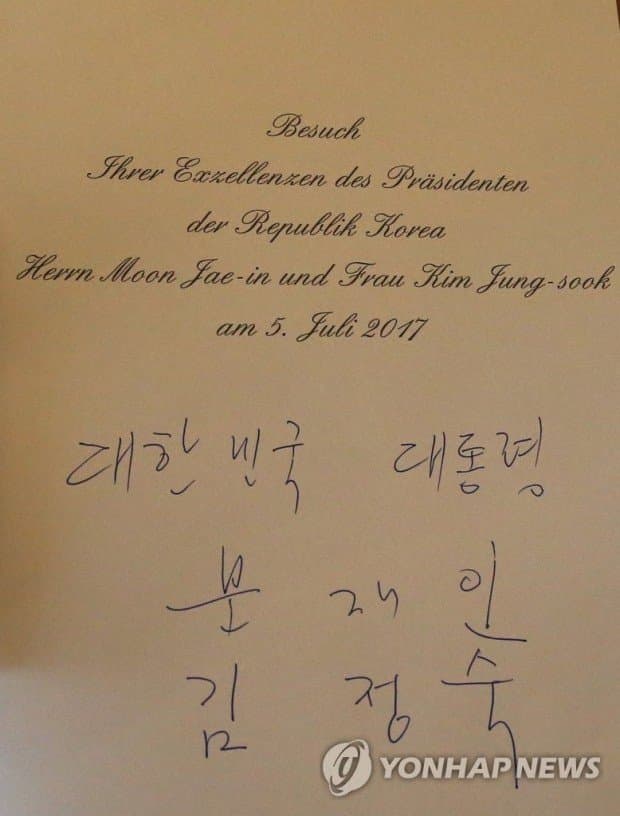 Besuch
Ihrer Exzellenzen des Präsidenten
der Republik Korea
Herrn Moon Jae-in und Frau Kim Jung-sook
am 5. Juli 2017
대한민국 대통령
문재인
김정숙
YONHAP NEWS